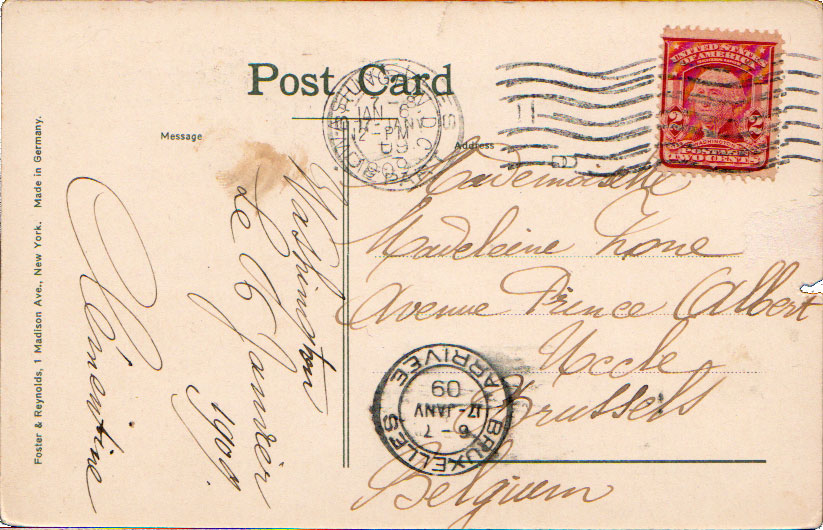 Post Card
Message
Address
UNITED STATES
OF AMERICA
2 2
WASHINGTON
POSTAGE
TWO CENTS
WASHINGTON, D.C.
JAN 6
12-PM
09
Mademoiselle
Madeleine Lone
Avenue Prince Albert
Uccle
Brussels
Belguem
BRUXELLES
ARRIVÉE
6-7
17-JANV
09
Washington
Le 6 Janvier
1909.
Foster & Reynolds, 1 Madison Ave., New York. Made in Germany.